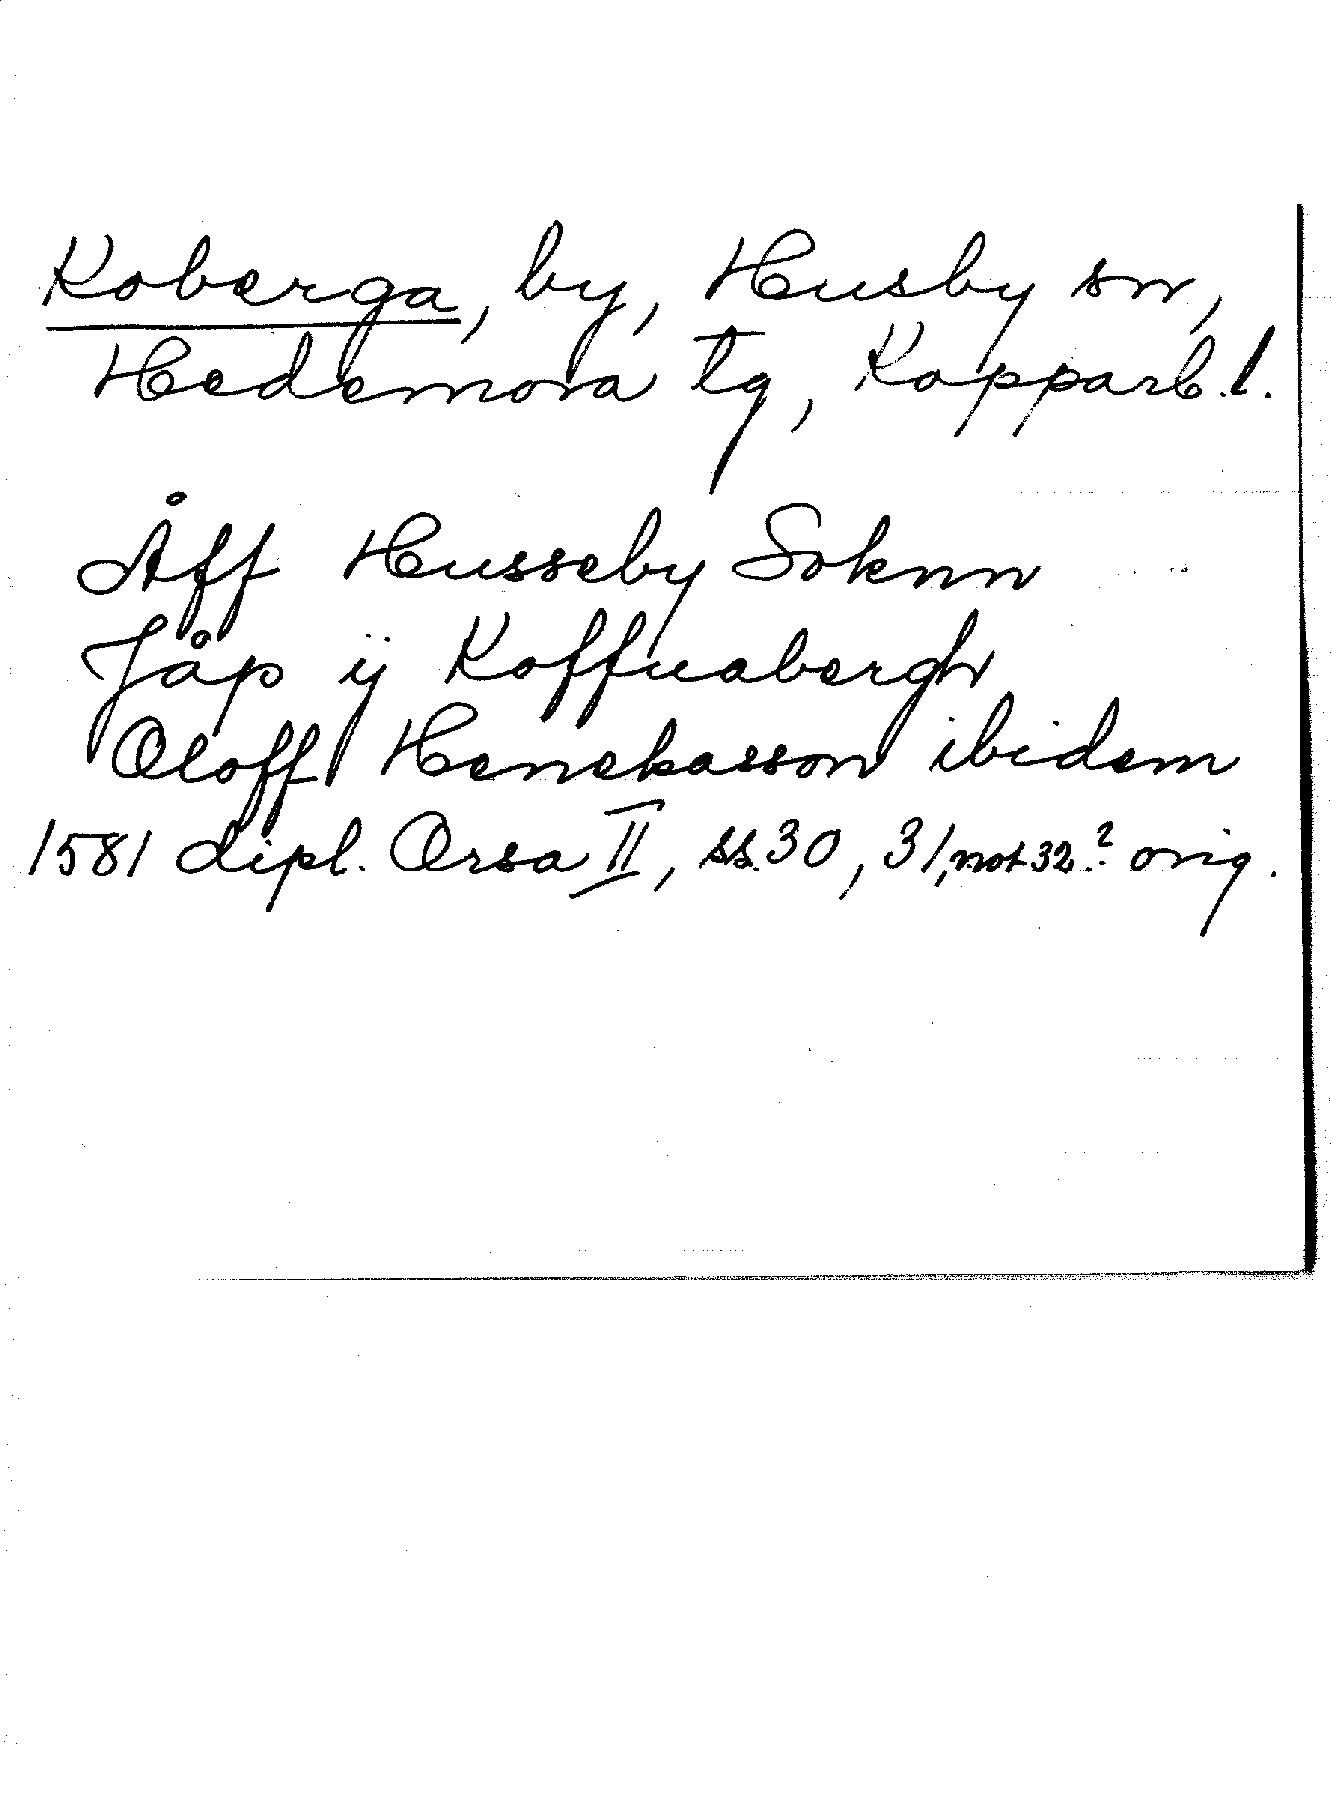 Koberga, by, Husby sn,
Hedemora tg, Kopparb. l.
Åff Husseby Soknn
Jåp ÿ Koffuabergh
Oloff Henekasson ibidem
1581 dipl. Orsa II, ss. 30, 31, not 32.? orig.